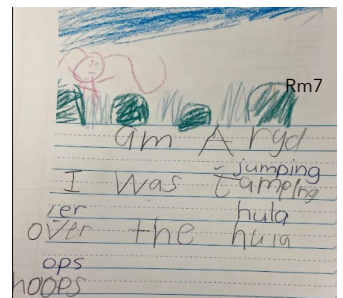 Rm7
am A ryd
jumping
I was
er hula
over the hula
ops
hoops